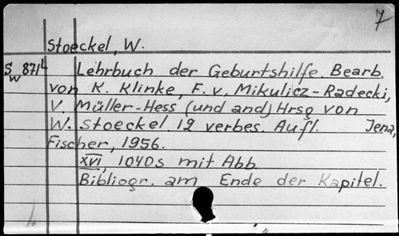 7
Stoeckel, W.
Sw 871L Lehrbuch der Geburtshilfe. Bearb.
von K. Klinke, F. v. Mikulicz-Radecki,
V. Müller-Hess (und and) Hrsg von
W. Stoeckel 12 verbes. Aufl. Jena,
Fischer, 1956.
XVI, 1040s mit Abb.
Bibliogr. am Ende der Kapitel.